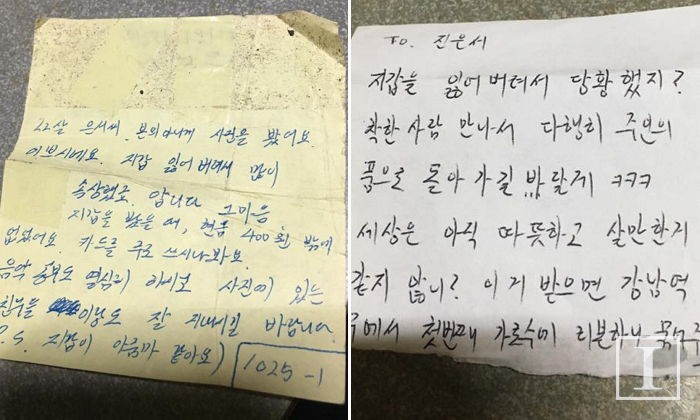 22살 은서씨 본의 아니게 사진을 봤어요
이쁘시네요. 지갑 잃어버려서 많이
속상했죠. 압니다 그마음
지갑을 봤을 때, 현금 400원 밖에
없었어요. 카드를 주로 쓰시나봐요.
음악 공부도 열심히 하시고 사진에 있는
친구들 이랑도 잘 지내시길 바랍니다
P.S. 지갑이 아줌마 같아요)
1025-1
To. 진은서
지갑을 잃어버려서 당황했지?
착한 사람 만나서 다행히 주인의
품으로 돌아가길 바랄게 ㅋㅋㅋ
세상은 아직 따뜻하고 살만한지
같지 않니? 이거 받으면 강남역
에서 첫번째 가로수에 리본하나
I